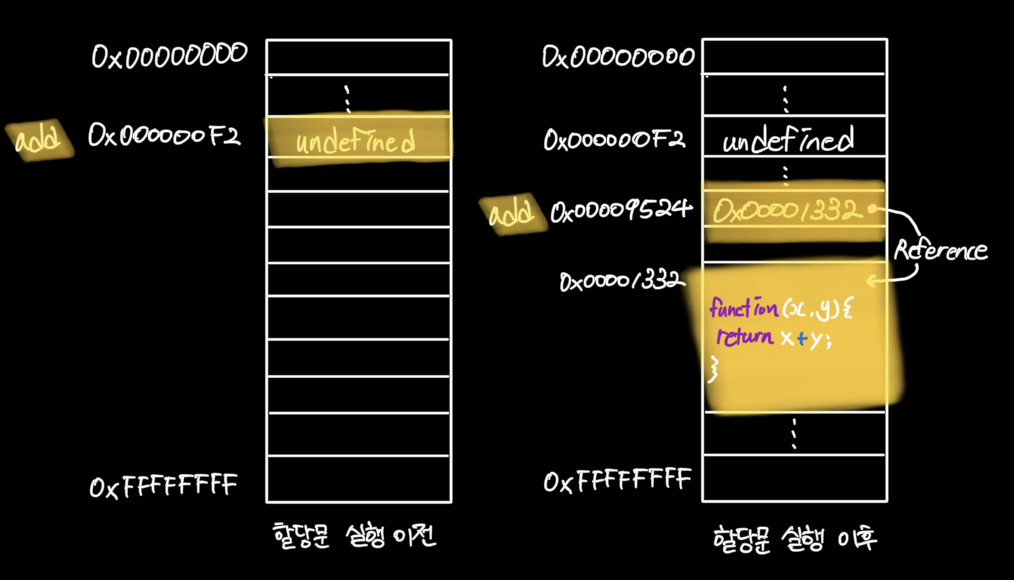 0x00000000
add 0x000000F2 undefined
0xFFFFFFFF
할당문 실행 이전
0x00000000
0x000000F2 undefined
add 0x00009524 0x00001332
Reference
0x00001332
function(x,y){
return x+y;
}
0xFFFFFFFF
할당문 실행 이후